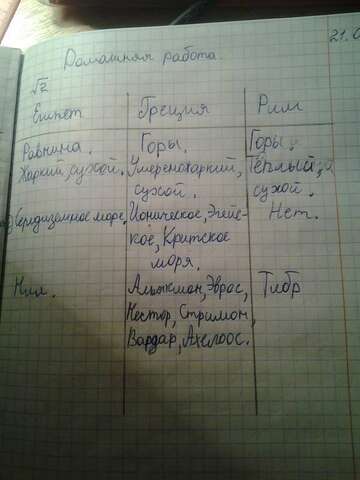 21.0
Домашняя работа.
√2
Египет Греция Рим
Равнина. Горы. Горы.
Жаркий, сухой. Умереножаркий, Тёплый,
сухой. сухой.
Средиземное море. Ионическое, Эгейс- Нет.
кое, Критское
моря.
Нил. Альякмон, Эврос, Тибр
Нестор, Стримон,
Вардар, Ахелоос.